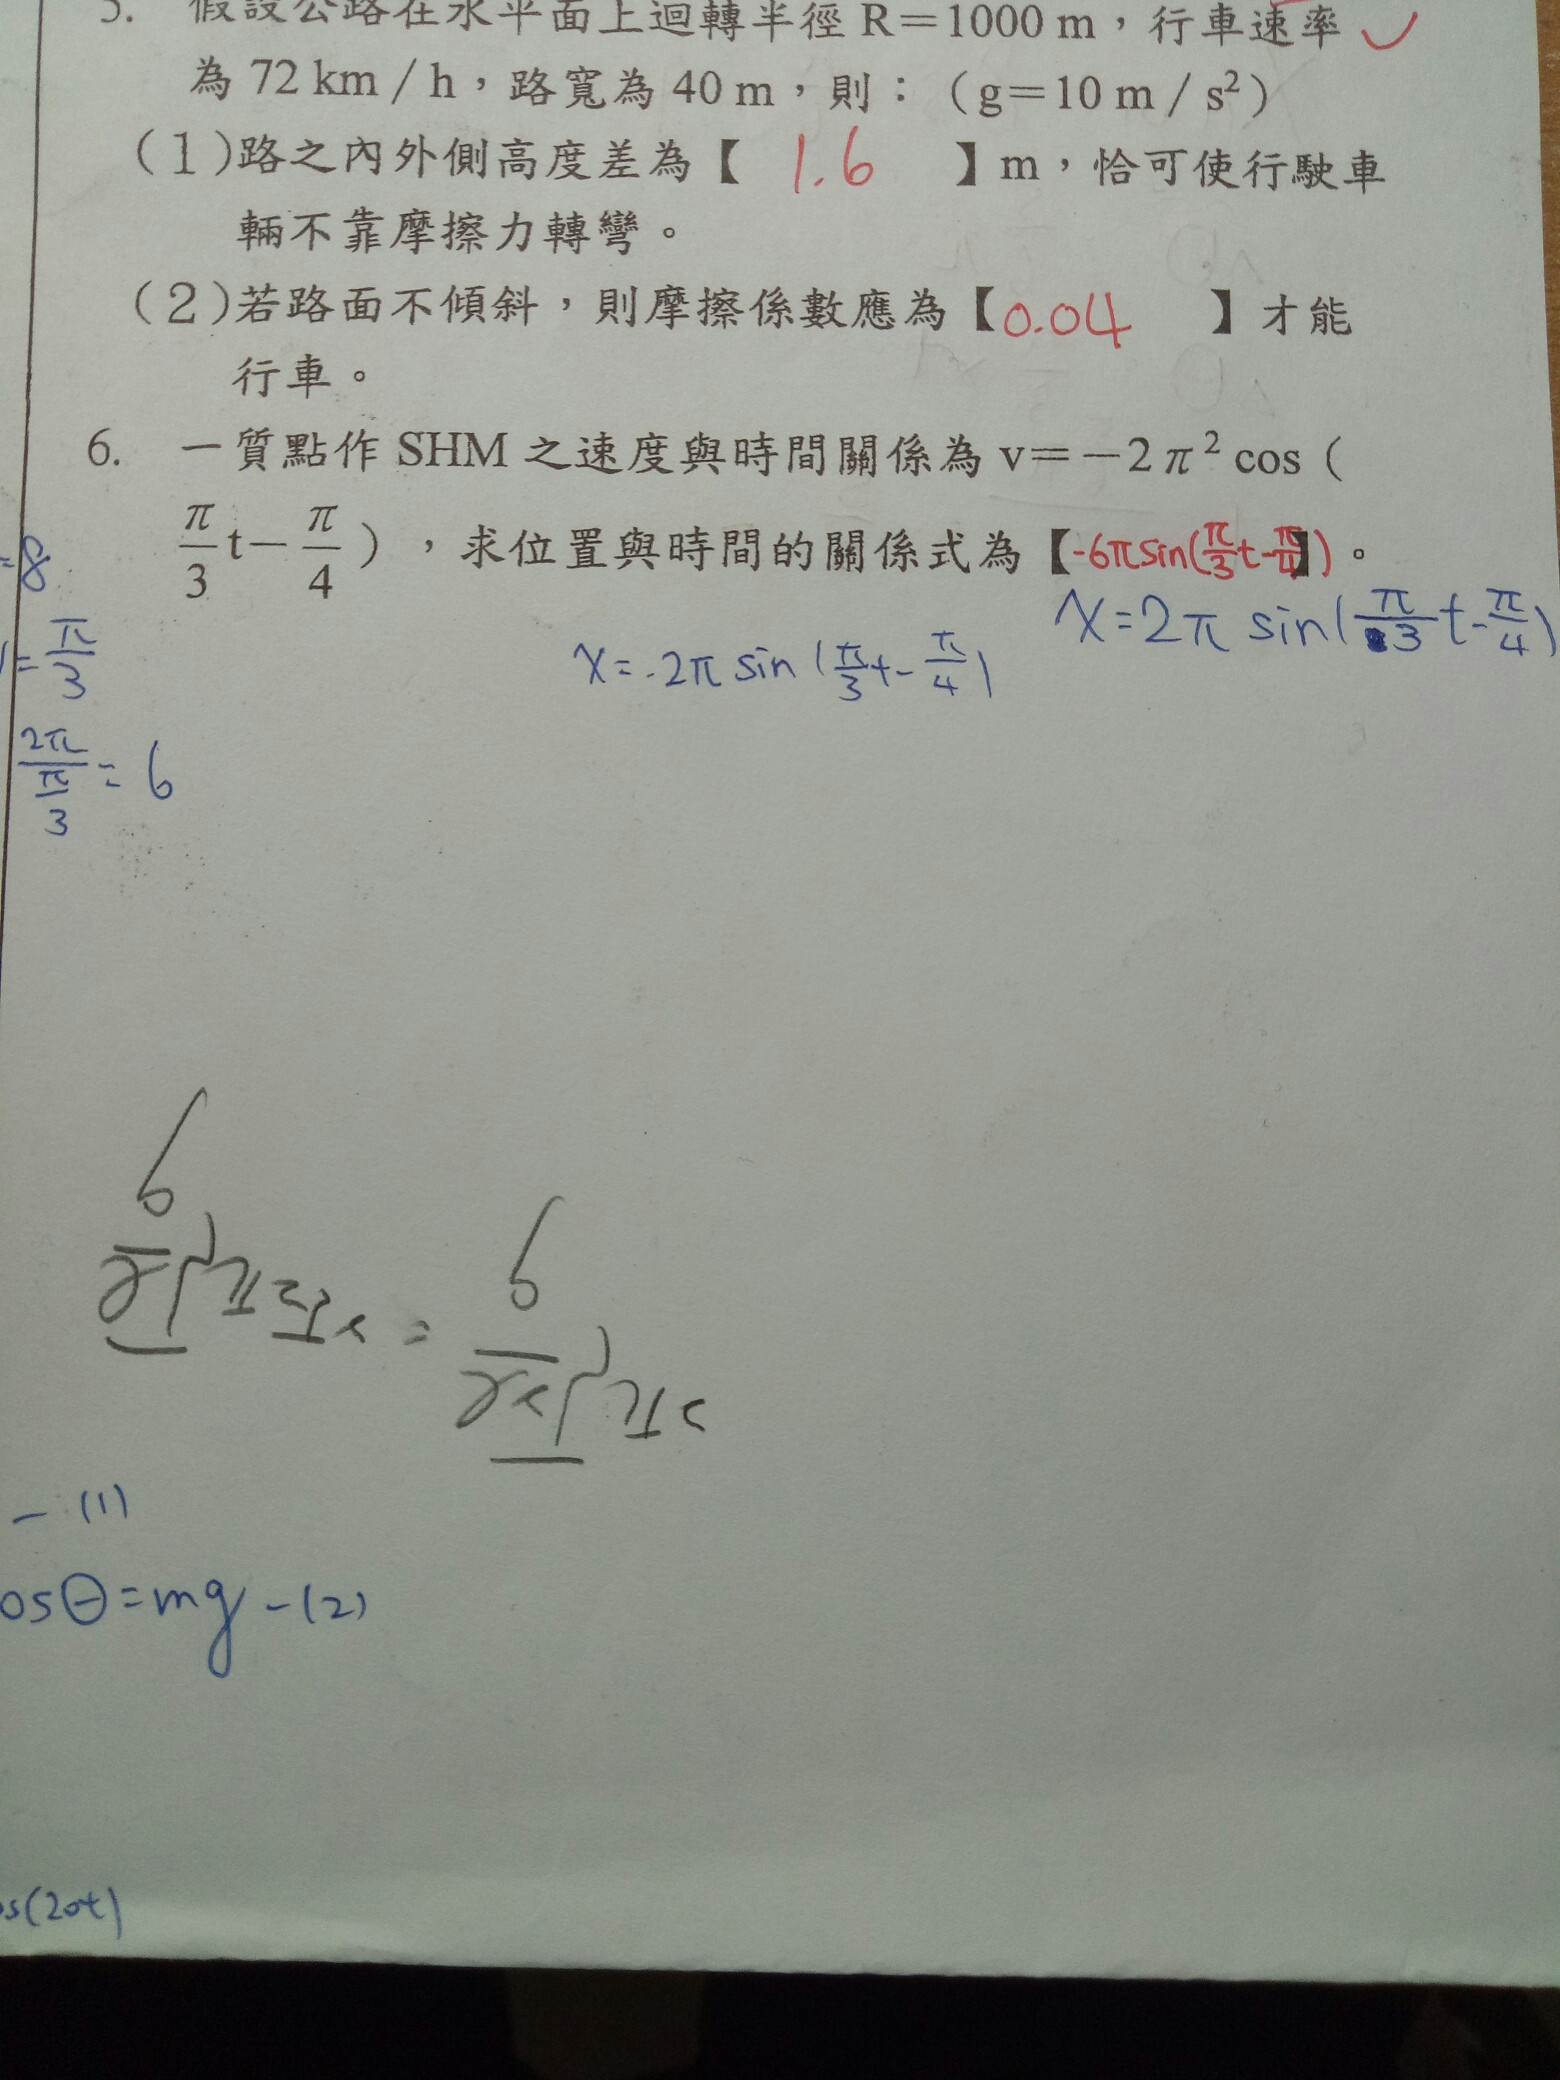 5. 假設公路在水平面上迴轉半徑 R＝1000 m，行車速率
為 72 km / h，路寬為 40 m，則：（g＝10 m / s²）
(1)路之內外側高度差為【 1.6 】m，恰可使行駛車
輛不靠摩擦力轉彎。
(2)若路面不傾斜，則摩擦係數應為【0.04 】才能
行車。
6. 一質點作 SHM 之速度與時間關係為 v＝－2π² cos（
π/3 t－π/4），求位置與時間的關係式為【-6πsin(π/3 t-π/4)】。
x=2π sin(π/3 t-π/4)
x=-2π sin(π/3 t-π/4)
=8
=π/3
2π/(π/3)=6
-(1)
osθ=mg-(2)
os(20t)